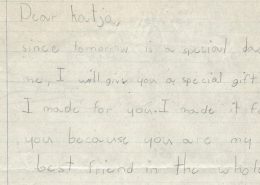 Dear Katja,
since tomorrow is a special da
me, I will give you a special gift
I made for you. I made it f
you because you are my
best friend in the whole